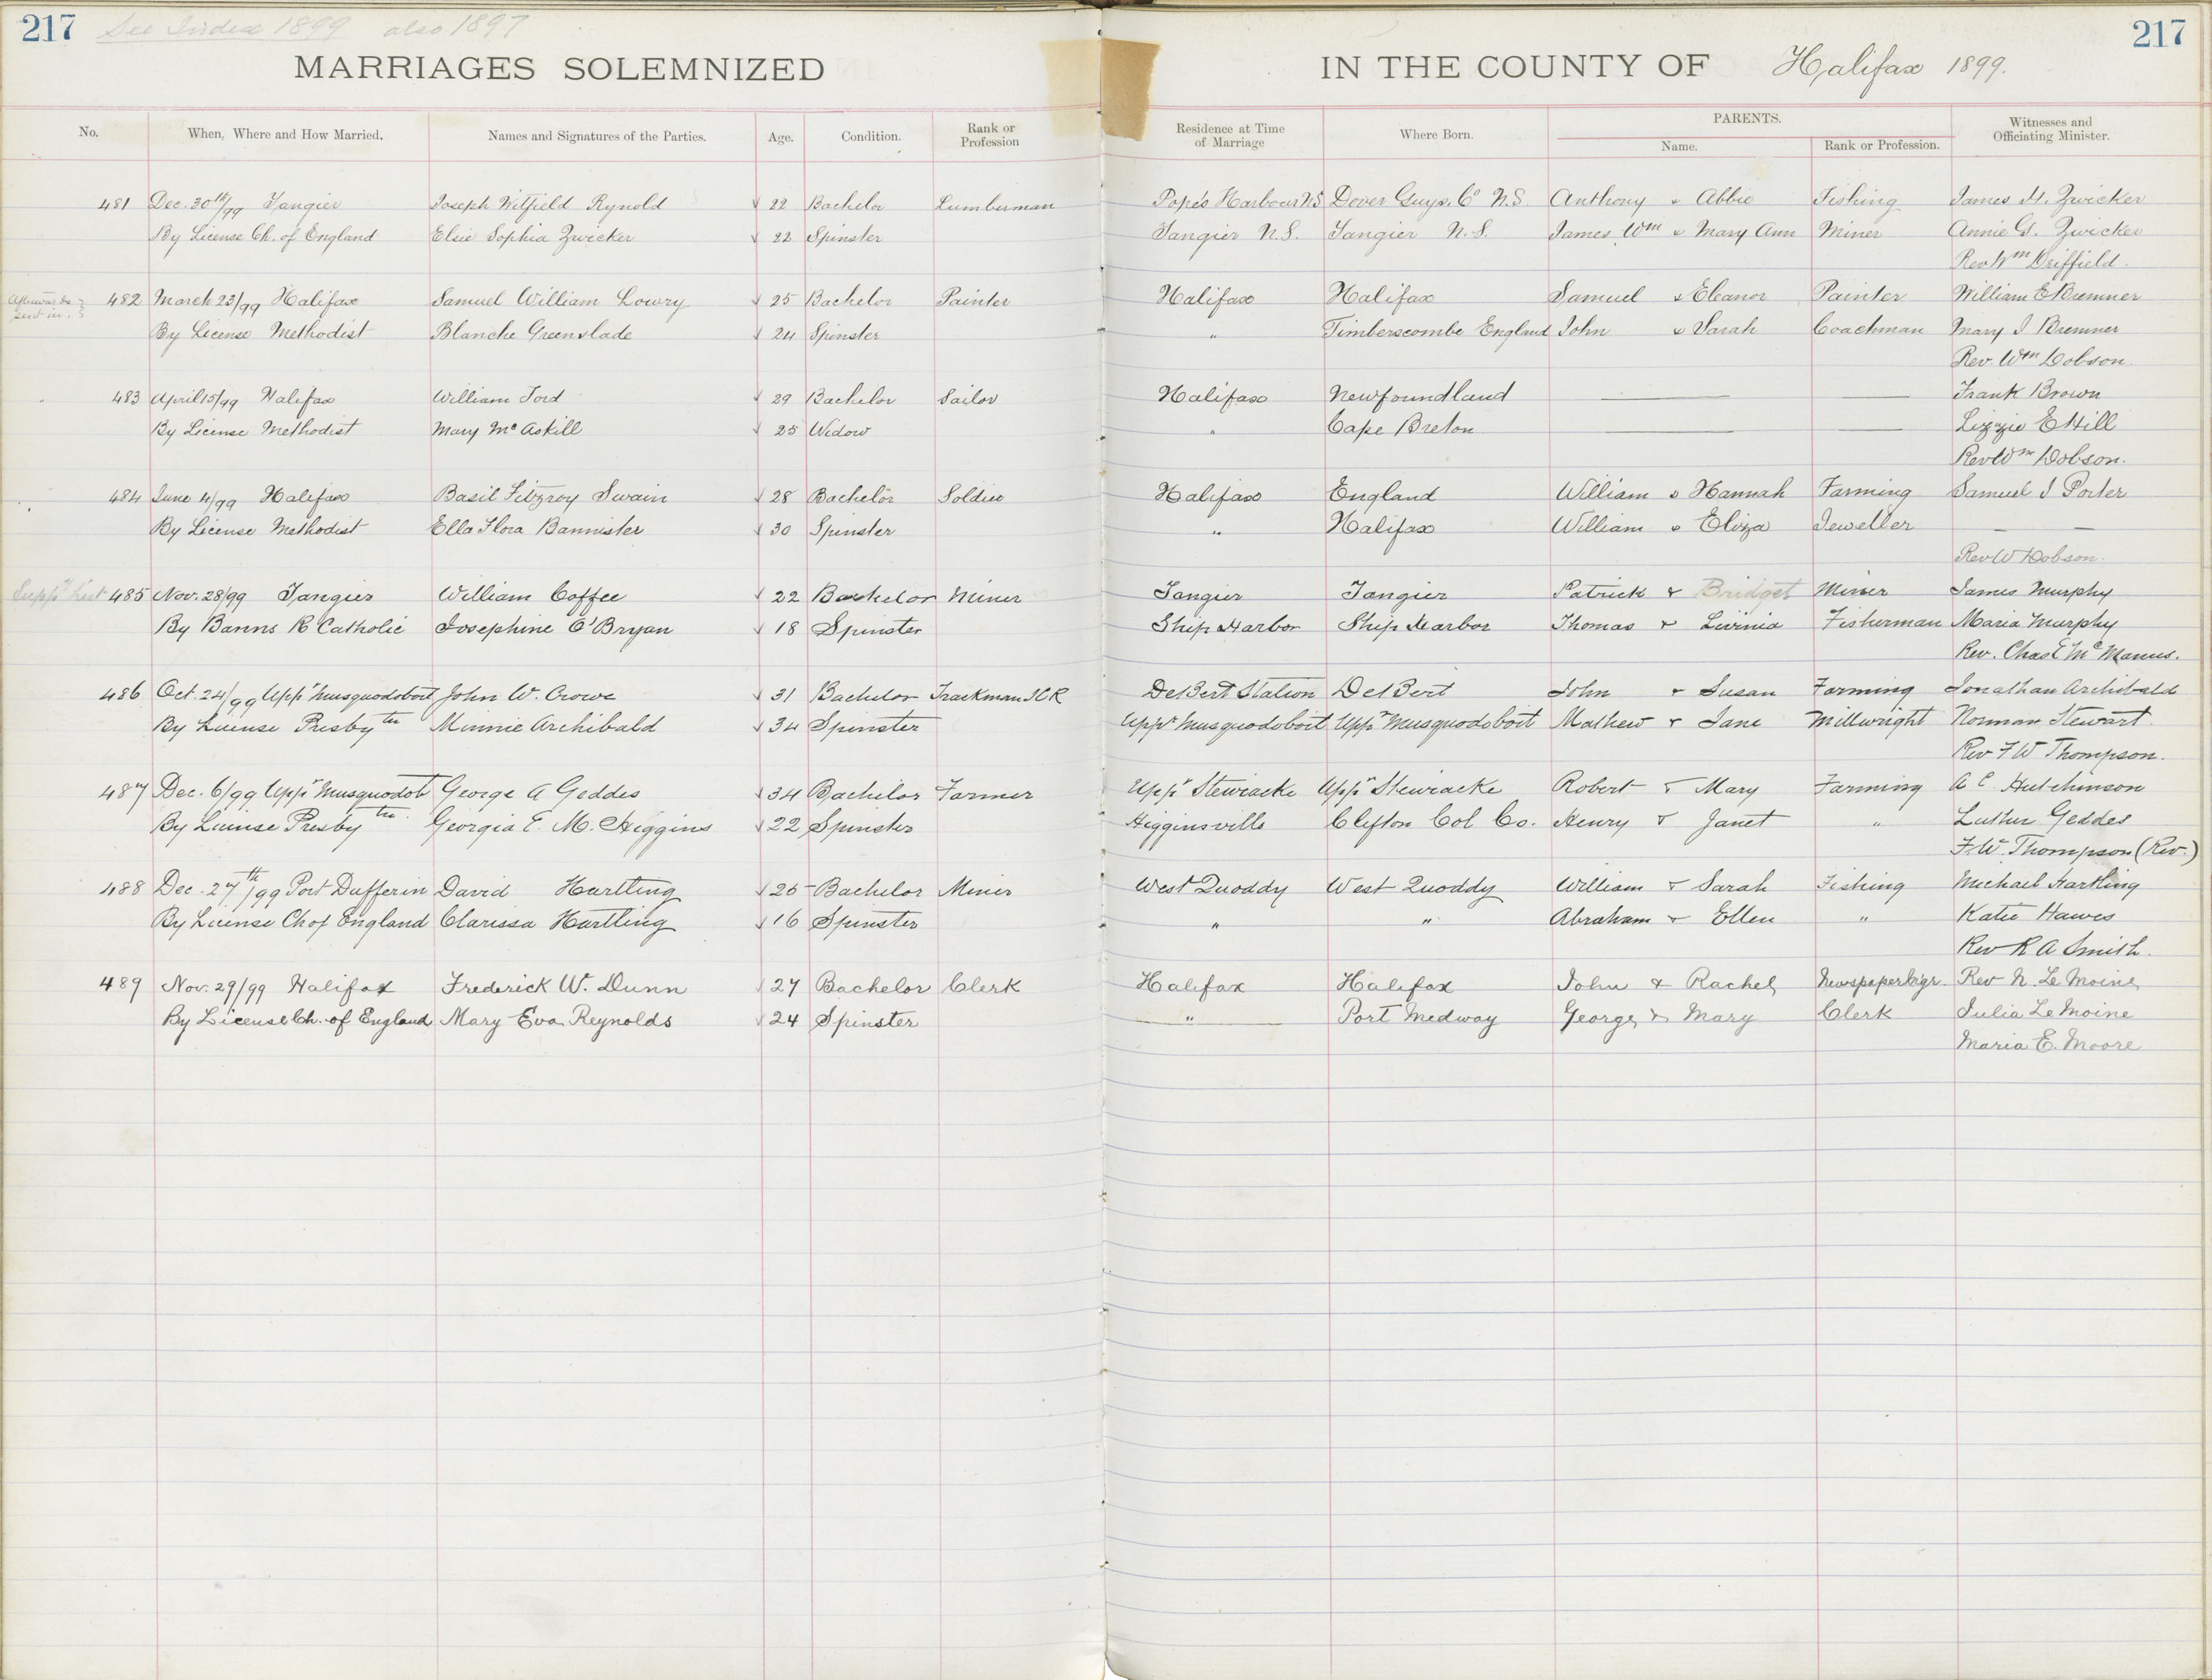 217 See Index 1899 also 1897 217
MARRIAGES SOLEMNIZED IN THE COUNTY OF Halifax 1899.
No. When, Where and How Married. Names and Signatures of the Parties. Age. Condition. Rank or Profession Residence at Time of Marriage Where Born. PARENTS. Name. Rank or Profession. Witnesses and Officiating Minister.
481 Dec. 30th/99 Tangier Joseph Witfield Rynold √ 22 Bachelor Lumberman Pope's Harbour N.S. Dover Guys. Co N.S. Anthony & Abbie Fishing James H. Zwicker
By License Ch. of England Elsie Sophia Zwicker √ 22 Spinster Tangier N.S. Tangier N.S. James Wm & Mary Ann Miner Annie G. Zwicker
Rev Wm Driffield.
Afterwards sent in. 482 March 23/99 Halifax Samuel William Lowry √ 25 Bachelor Painter Halifax Halifax Samuel & Eleanor Painter William E Bremner
By License Methodist Blanche Greenslade √ 24 Spinster " Timberscombe England John & Sarah Coachman Mary J Bremner
Rev. Wm Dobson.
483 April 15/99 Halifax William Ford √ 29 Bachelor Sailor Halifax Newfoundland — — Frank Brown
By License Methodist Mary Mc Askill √ 25 Widow " Cape Breton — — Lizzie E Hill
Rev Wm Dobson.
484 June 4/99 Halifax Basil Fitzroy Swain √ 28 Bachelor Soldier Halifax England William & Hannah Farming Samuel J Porter
By License Methodist Ella Flora Bannister √ 30 Spinster " Halifax William & Eliza Jeweller — —
Rev W Dobson.
485 Nov. 28/99 Tangier William Coffee √ 22 Bachelor Miner Tangier Tangier Patrick & Bridget Miner James Murphy
By Banns R Catholic Josephine O'Bryan √ 18 Spinster Ship Harbor Ship Harbor Thomas & Livinia Fisherman Maria Murphy
Rev. Chas E Mc Manus.
486 Oct. 24/99 Uppr Musquodoboit John W. Crowe √ 31 Bachelor Trackman ICR DeBert Station DeBert John & Susan Farming Jonathan Archibald
By License Presbytn Minnie Archibald √ 34 Spinster Uppr Musquodoboit Uppr Musquodoboit Mathew & Jane Millwright Norman Stewart
Rev F W Thompson.
487 Dec. 6/99 Uppr Musquodot George A Geddes √ 34 Bachelor Farmer Uppr Stewiacke Uppr Stewiacke Robert & Mary Farming A C. Hutchinson
By License Presbytn. Georgia E. M. Higgins √ 22 Spinster Higginsville Clifton Col Co. Henry & Janet " Luther Geddes
F. W. Thompson (Rev.)
488 Dec. 27th/99 Port Dufferin David Hartling √ 25 Bachelor Miner West Quoddy West Quoddy William & Sarah Fishing Michael Hartling
By License Ch of England Clarissa Hartling √ 16 Spinster " " Abraham & Ellen " Katie Hawes
Rev R A Smith.
489 Nov. 29/99 Halifax Frederick W. Dunn √ 27 Bachelor Clerk Halifax Halifax John & Rachel Newspaper Mgr. Rev N. Le Moine
By License Ch. of England Mary Eva Reynolds √ 24 Spinster " Port Medway George & Mary Clerk Julia Le Moine
Maria E. Moore